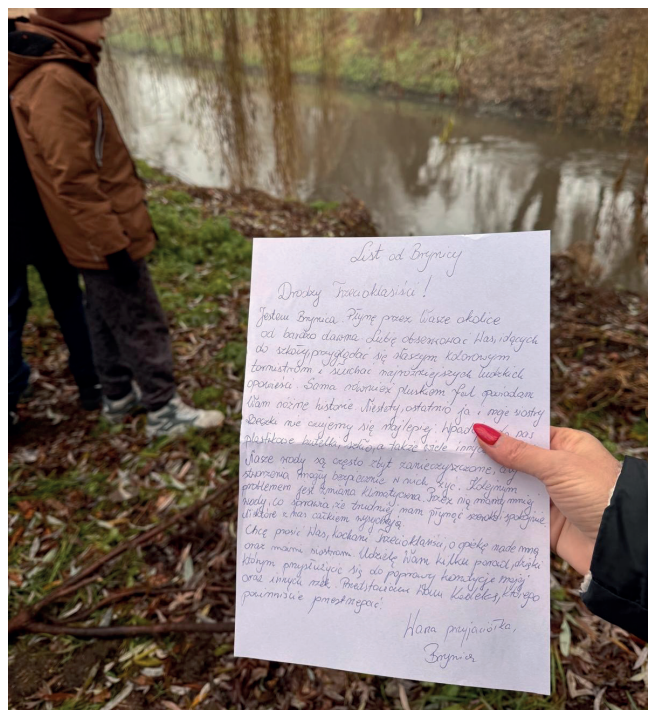 List od Brynicy
Drodzy Trzecioklasiści!
Jestem Brynica. Płynę przez Wasze okolice
od bardzo dawna. Lubię obserwować Was, idących
do szkoły, przyglądać się Waszym kolorowym
tornistrom i słuchać najróżniejszych ludzkich
opowieści. Sama również pluskiem fal opowiadam
Wam różne historie. Niestety, ostatnio ja i moje siostry
Rzeki nie czujemy się najlepiej. do nas
plastikowe butelki, także wiele
Nasze wody są często zbyt zanieczyszczone, aby
stworzenia mogły bezpiecznie w nich żyć. Kolejnym
problemem jest zmiana klimatyczna. Przez nią mamy mniej
wody, co sprawia, że trudniej nam płynąć szeroko, spokojnie
niektóre z nas całkiem wysychają.
Chcę prosić Was, kochani Trzecioklasiści, o opiekę nade mną
oraz moimi siostrami. Udzielę Wam kilku porad, dzięki
którym przysłużycie się do poprawy kondycji mojej
oraz innych rzek. Przedstawiam Wam Kodeks, którego
powinniście przestrzegać.
Wasza przyjaciółka,
Brynica